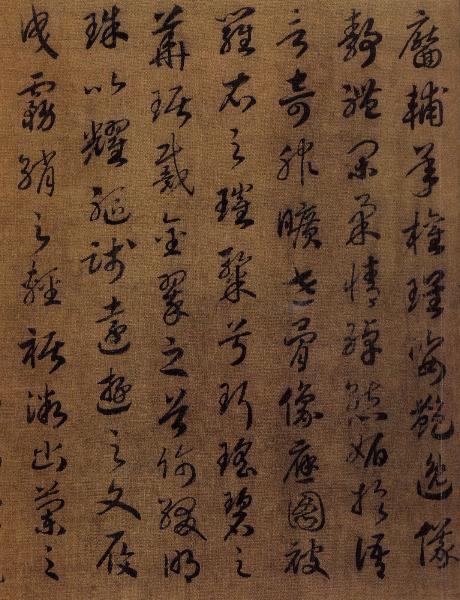 靨輔承權瓌姿艷逸儀
靜體閑柔情綽態媚於語
言奇服曠世骨像應圖被
羅衣之璀粲兮珥瑤碧之
華琚戴金翠之首飾綴明
珠以耀軀踐遠遊之文履
曳霧綃之輕裾微幽蘭之